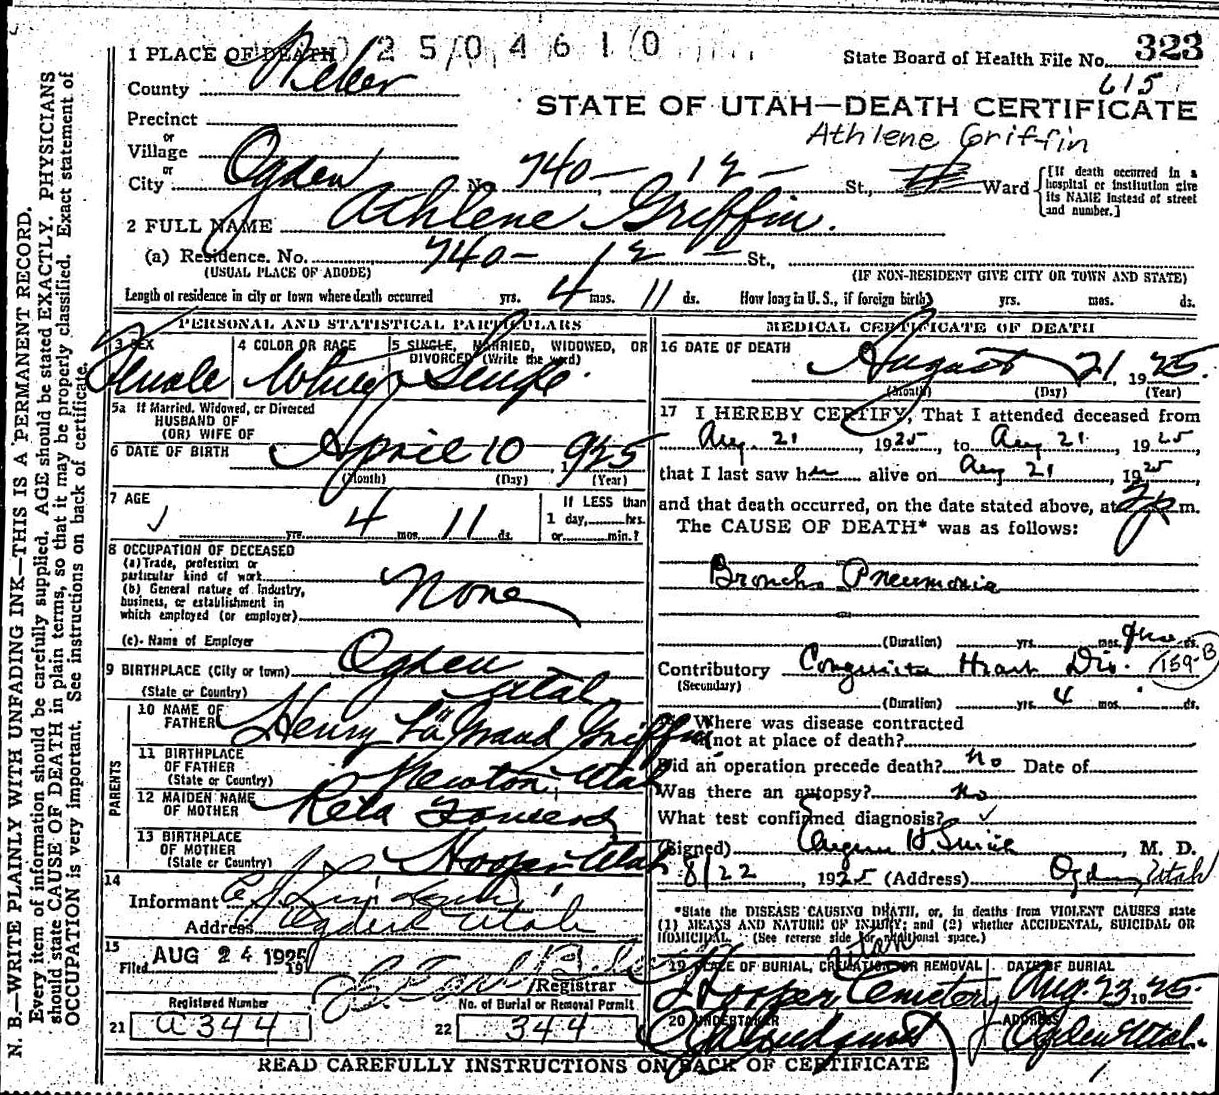 N. B.—WRITE PLAINLY WITH UNFADING INK—THIS IS A PERMANENT RECORD.
Every item of information should be carefully supplied. AGE should be stated EXACTLY. PHYSICIANS
should state CAUSE OF DEATH in plain terms, so that it may be properly classified. Exact statement of
OCCUPATION is very important. See instructions on back of certificate.
1 PLACE OF DEATH 2 5 0 4 6 1 0
State Board of Health File No. 323
615
County Weber
STATE OF UTAH—DEATH CERTIFICATE
Athlene Griffin
Precinct
or
Village
or
City Ogden No. 740 - 12 - St., Ward
[If death occurred in a
hospital or institution give
its NAME instead of street
and number.]
2 FULL NAME Athlene Griffin.
(a) Residence. No. 740 - 12 - St.,
(USUAL PLACE OF ABODE)
(IF NON-RESIDENT GIVE CITY OR TOWN AND STATE)
Length of residence in city or town where death occurred yrs. 4 mos. 11 ds. How long in U. S., if foreign birth? yrs. mos. ds.
PERSONAL AND STATISTICAL PARTICULARS
3 SEX
Female
4 COLOR OR RACE
White
5 SINGLE, MARRIED, WIDOWED, OR
DIVORCED (Write the word)
Single
5a If Married, Widowed, or Divorced
HUSBAND OF
(OR) WIFE OF
6 DATE OF BIRTH April 10, 1925
(Month) (Day) (Year)
7 AGE
yrs. 4 mos. 11 ds.
If LESS than
1 day, hrs.
or min.?
8 OCCUPATION OF DECEASED
(a) Trade, profession or
particular kind of work
(b) General nature of Industry,
business, or establishment in
which employed (or employer)
None
(c) Name of Employer
9 BIRTHPLACE (City or town) Ogden
(State or Country) Utah
PARENTS
10 NAME OF
FATHER Henry La Graud Griffin
11 BIRTHPLACE
OF FATHER
(State or Country) Newton, Utah
12 MAIDEN NAME
OF MOTHER Reta
13 BIRTHPLACE
OF MOTHER
(State or Country) Hooper Utah
14
Informant
Address Ogden Utah
15
Filed AUG 24 1925
19
Registrar
Registered Number
21 a 344
No. of Burial or Removal Permit
22 344
MEDICAL CERTIFICATE OF DEATH
16 DATE OF DEATH
August 21 1925.
(Month) (Day) (Year)
17 I HEREBY CERTIFY, That I attended deceased from
Aug. 21, 1925, to Aug 21, 1925,
that I last saw her alive on Aug 21, 1925,
and that death occurred, on the date stated above, at 2 p m.
The CAUSE OF DEATH* was as follows:
Broncho Pneumonia
(Duration) yrs. mos. ds.
Contributory Congenital Heart Dis. 159-B
(Secondary)
(Duration) yrs. 4 mos. ds.
Where was disease contracted
if not at place of death?
Did an operation precede death? No Date of
Was there an autopsy? No
What test confirmed diagnosis?
(Signed) H. Smith, M. D.
8/22, 1925 (Address) Ogden, Utah
*State the DISEASE CAUSING DEATH, or, in deaths from VIOLENT CAUSES state
(1) MEANS AND NATURE OF INJURY; and (2) whether ACCIDENTAL, SUICIDAL OR
HOMICIDAL. (See reverse side for additional space.)
19 PLACE OF BURIAL, CREMATION OR REMOVAL
Utah
Hooper Cemetery
DATE OF BURIAL
Aug. 23, 1925.
20 UNDERTAKER
ADDRESS
Ogden Utah.
READ CAREFULLY INSTRUCTIONS ON BACK OF CERTIFICATE